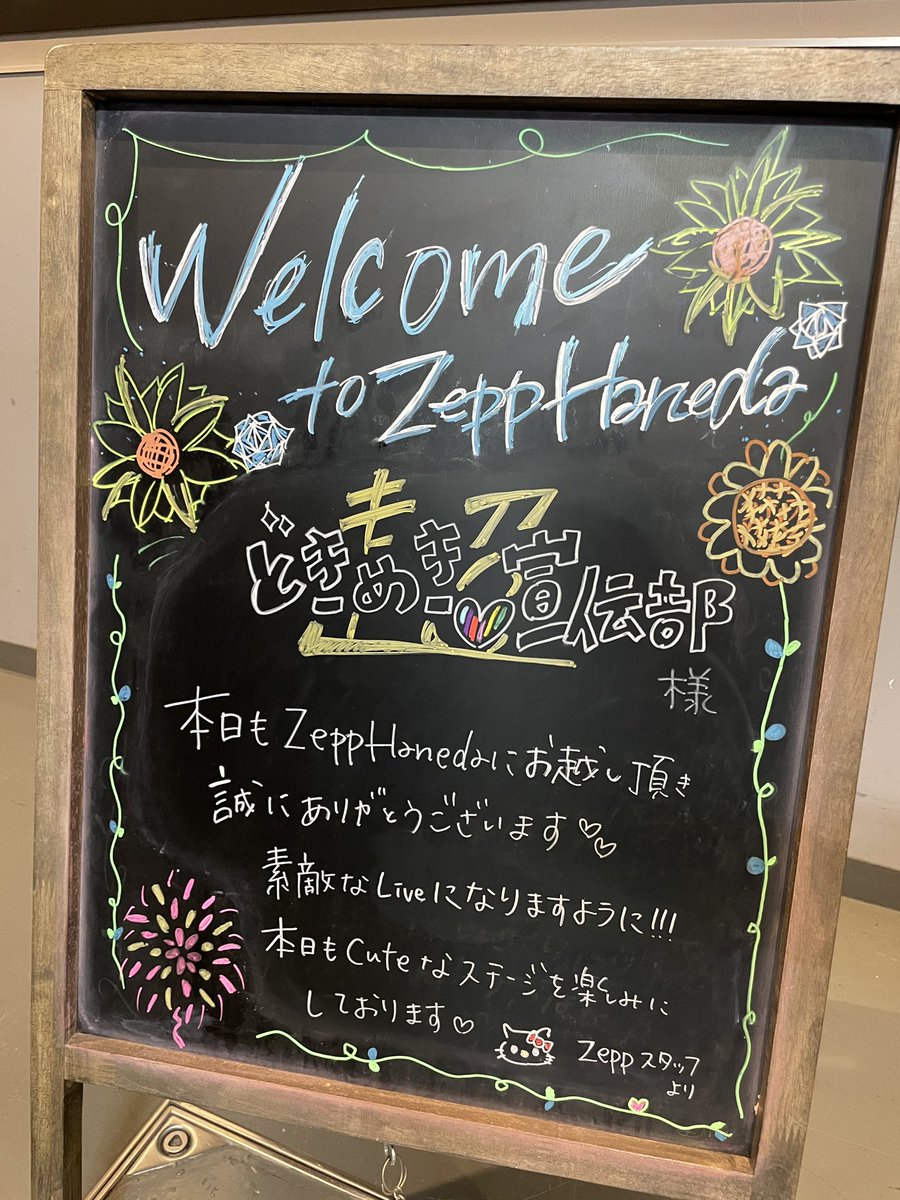 Welcome
to Zepp Haneda
ときめき♡宣伝部
超
様
本日も Zepp Hanedaにお越し頂き
誠にありがとうございます♡♡
素敵なLiveになりますように!!!
本日もCuteなステージを楽しみに
しております♡
Zeppスタッフ
より